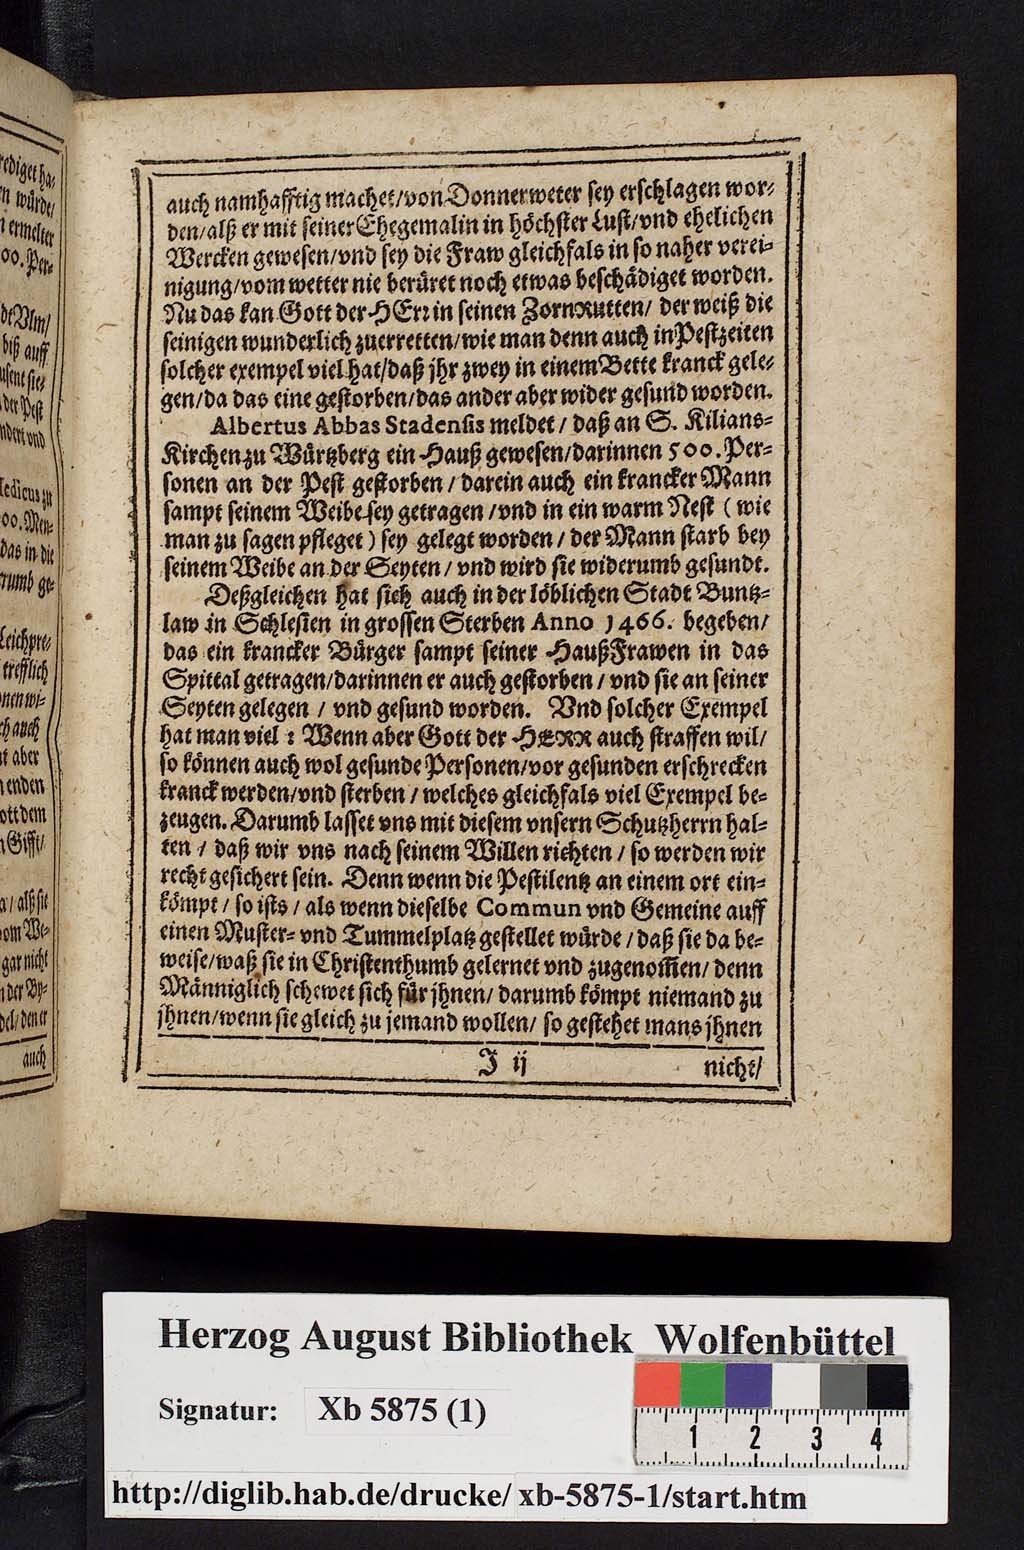 rediget ha-
n würde/
n ermelter
00. Per-
dt Vlm/
biß auff
usent sie-
der Pest
ndert vnd
ledicus zu
00. Men-
das in die
rumb ge-
Leichpre-
trefflich
nen wi-
ch auch
t aber
enden
ott dem
Gifft/
a/ alß sie
om We-
gar nicht
der By-
del/ den er
auch
auch namhafftig machet/von Donnerweter sey erschlagen wor-
den/alß er mit seiner Ehegemalin in höchster Lust/vnd ehelichen
Wercken gewesen/vnd sey die Fraw gleichfals in so naher verei-
nigung/vom wetter nie berüret noch etwas beschädiget worden.
Nu das kan Gott der HErr in seinen ZornRutten/ der weiß die
seinigen wunderlich zuerretten/wie man denn auch in Pestzeiten
solcher exempel viel hat/daß jhr zwey in einem Bette kranck gele-
gen/da das eine gestorben/das ander aber wider gesund worden.
Albertus Abbas Stadensis meldet / daß an S. Kilians-
Kirchen zu Würtzberg ein Hauß gewesen/darinnen 500. Per-
sonen an der Pest gestorben / darein auch ein krancker Mann
sampt seinem Weibe sey getragen /vnd in ein warm Nest ( wie
man zu sagen pfleget ) sey gelegt worden / der Mann starb bey
seinem Weibe an der Seyten / vnd wird sie widerumb gesundt.
Deßgleichen hat sich auch in der löblichen Stadt Buntz-
law in Schlesien in grossen Sterben Anno 1466. begeben/
das ein krancker Bürger sampt seiner HaußFrawen in das
Spittal getragen/darinnen er auch gestorben / vnd sie an seiner
Seyten gelegen / vnd gesund worden. Vnd solcher Exempel
hat man viel : Wenn aber Gott der HERR auch straffen wil/
so können auch wol gesunde Personen/vor gesunden erschrecken
kranck werden/vnd sterben / welches gleichfals viel Exempel be-
zeugen. Darumb lasset vns mit diesem vnsern Schutzherrn hal-
ten / daß wir vns nach seinem Willen richten / so werden wir
recht gesichert sein. Denn wenn die Pestilentz an einem ort ein-
kömpt / so ists / als wenn dieselbe Commun vnd Gemeine auff
einen Muster- vnd Tummelplatz gestellet würde / daß sie da be-
weise/waß sie in Christenthumb gelernet vnd zugenom̃en/ denn
Männiglich schewet sich für jhnen/ darumb kömpt niemand zu
jhnen/wenn sie gleich zu jemand wollen/ so gestehet mans jhnen
J ij nicht/
Herzog August Bibliothek Wolfenbüttel
Signatur: Xb 5875 (1)
1 2 3 4
http://diglib.hab.de/drucke/ xb-5875-1/start.htm